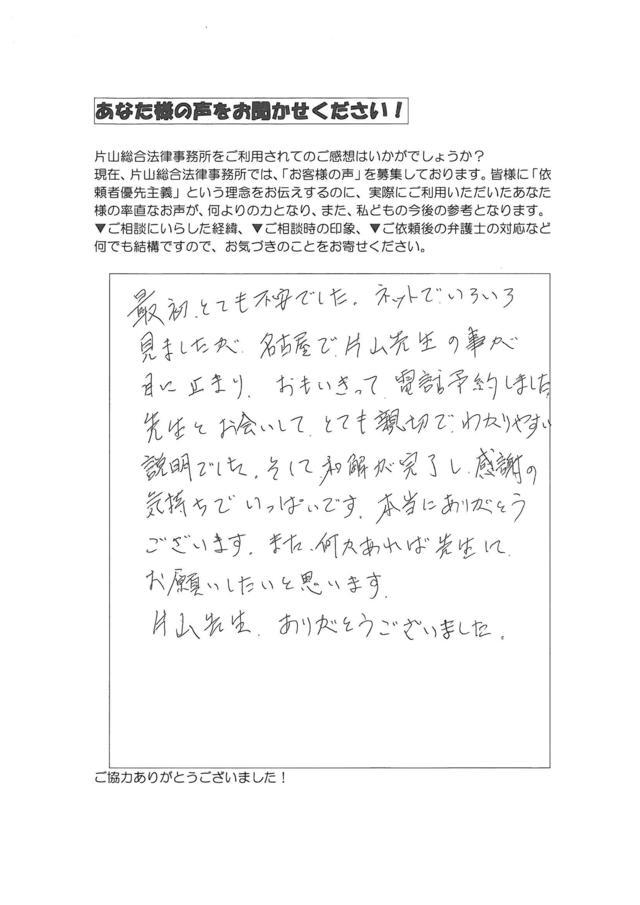 あなた様の声をお聞かせください！
片山総合法律事務所をご利用されてのご感想はいかがでしょうか？
現在、片山総合法律事務所では、「お客様の声」を募集しております。皆様に「依
頼者優先主義」という理念をお伝えするのに、実際にご利用いただいたあなた
様の率直なお声が、何よりの力となり、また、私どもの今後の参考となります。
▼ご相談にいらした経緯、▼ご相談時の印象、▼ご依頼後の弁護士の対応など
何でも結構ですので、お気づきのことをお寄せください。
最初、とても不安でした。ネットでいろいろ
見ましたが、名古屋で、片山先生の事が
目に止まり、おもいきって、電話予約しました
先生とお会いして、とても親切で、わかりやすい
説明でした。そして、和解が完了し、感謝の
気持ちでいっぱいです。本当にありがとう
ございます。また、何かあれば先生に、
お願いしたいと思います。
片山先生、ありがとうございました。
ご協力ありがとうございました！